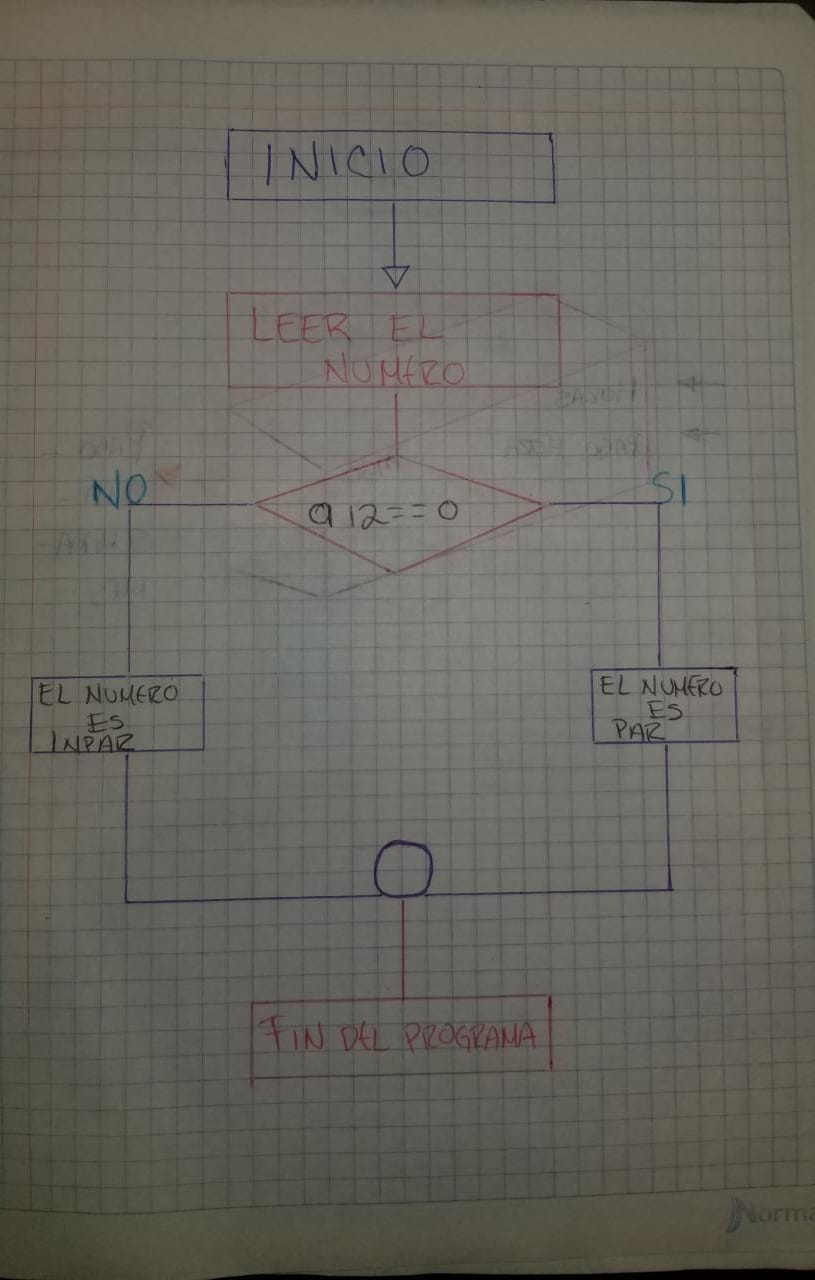 INICIO
LEER EL
NUMERO
NO
SI
a 12==0
EL NUMERO
ES
INPAR
EL NUMERO
ES
PAR
FIN DEL PROGRAMA